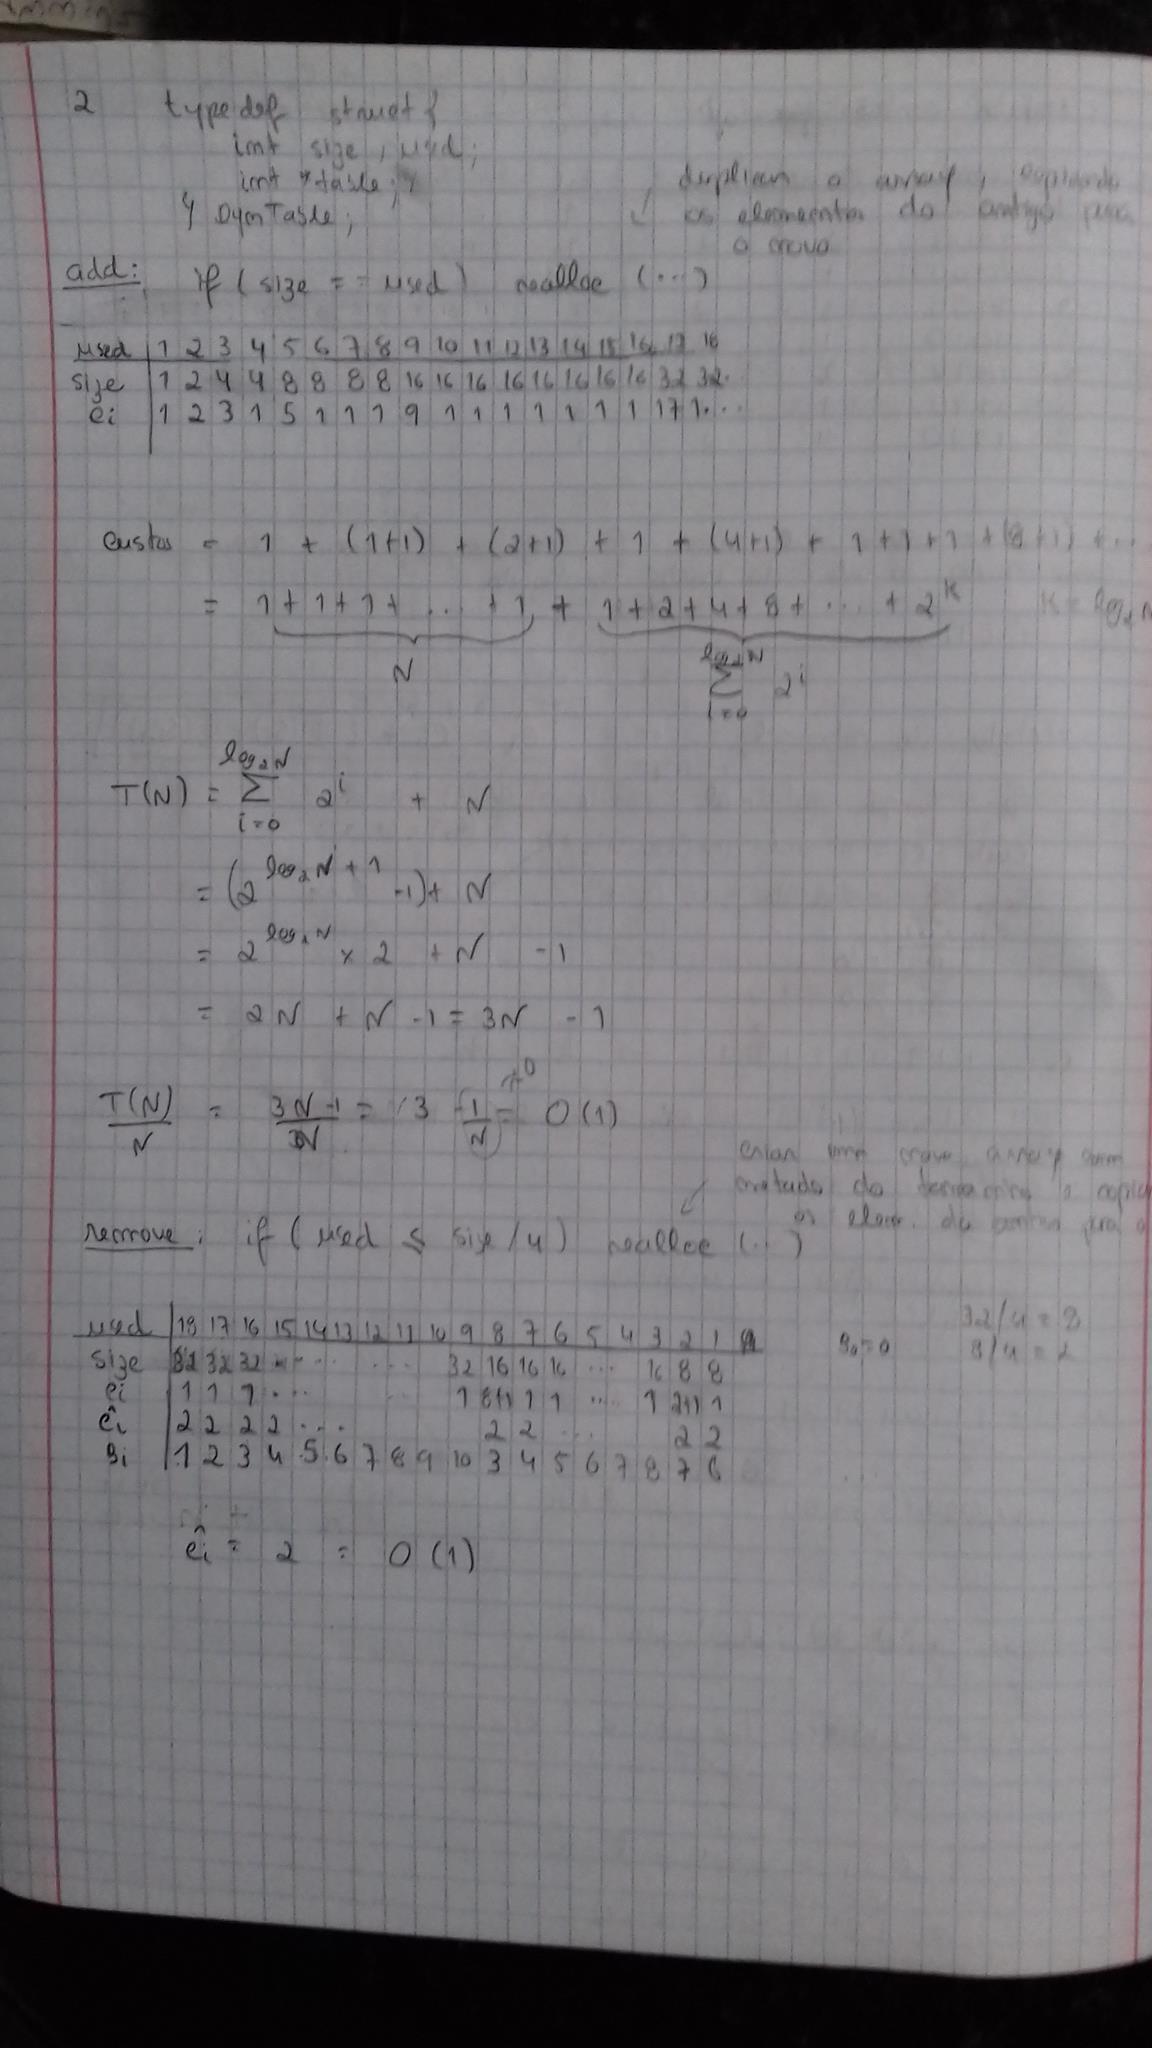 2 typedef struct {
int size, used;
int *table;
} DynTable;
duplicar o array, copiando
os elementos do antigo para
o novo
add: if (size == used) realloc (...)
used | 1 2 3 4 5 6 7 8 9 10 11 12 13 14 15 16 17 18
size | 1 2 4 4 8 8 8 8 16 16 16 16 16 16 16 16 32 32.
ci | 1 2 3 1 5 1 1 1 9 1 1 1 1 1 1 1 17 1...
custos = 1 + (1+1) + (2+1) + 1 + (4+1) + 1+1+1 + (8+1) + ...
= 1+1+1+ ... +1 + 1+2+4+8+ ... + 2^k k = log₂N
N ∑_{i=0}^{log₂N} 2^i
T(N) = ∑_{i=0}^{log₂N} 2^i + N
= (2^{log₂N + 1} -1) + N
= 2^{log₂N} × 2 + N -1
= 2N + N -1 = 3N -1
T(N)/N = (3N-1)/N = 3 - 1/N = O(1)
→0
criar um novo array com
metade do tamanho e copiar
os elem. do antigo para o
remove: if (used ≤ size/4) realloc (...)
used | 18 17 16 15 14 13 12 11 10 9 8 7 6 5 4 3 2 1
size | 32 32 32 ... ... 32 16 16 16 ... 16 8 8
ci | 1 1 1 ... 1 8+1 1 1 ... 1 2+1 1
ĉi | 2 2 2 2 ... 2 2 ... 2 2
Bi | 1 2 3 4 5 6 7 8 9 10 3 4 5 6 7 8 7 6
B₀=0
32/4 = 8
8/4 = 2
ĉi = 2 = O(1)